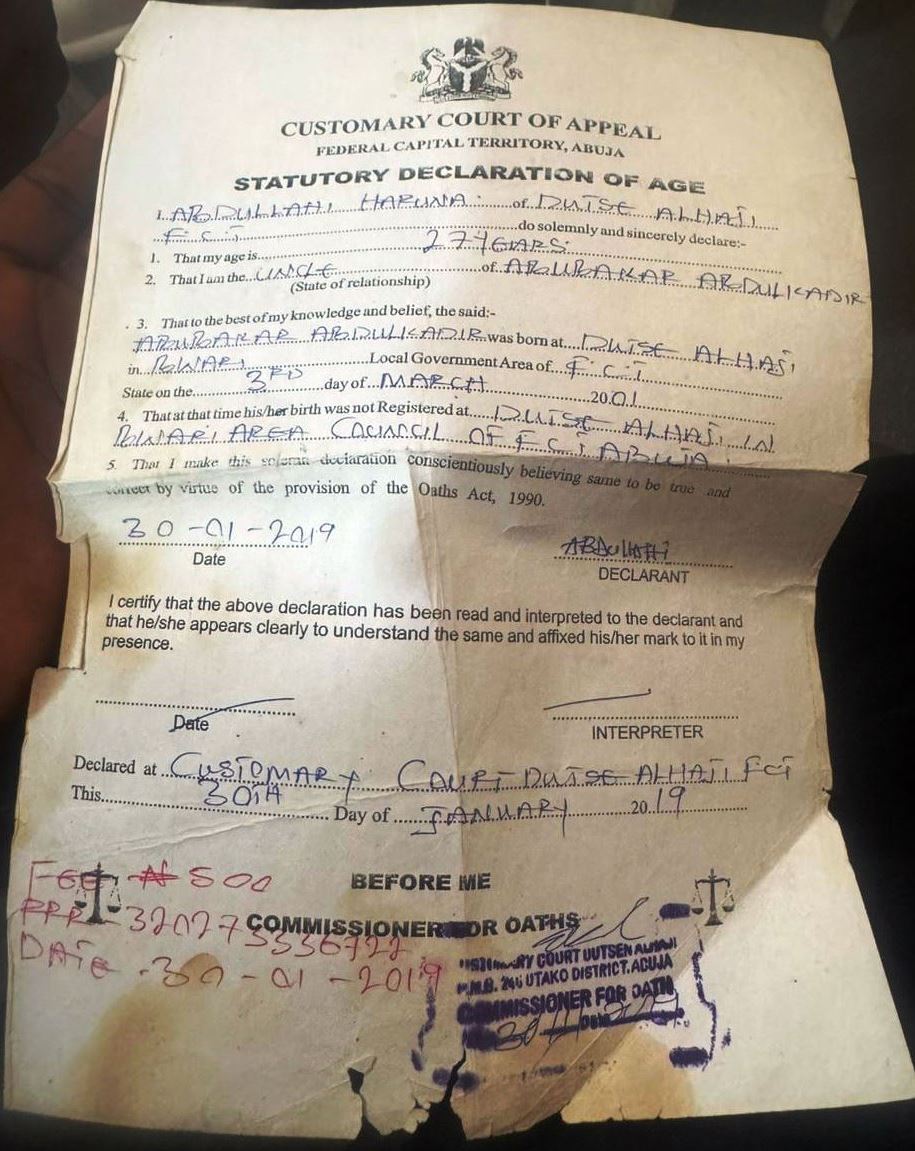 CUSTOMARY COURT OF APPEAL
FEDERAL CAPITAL TERRITORY, ABUJA
STATUTORY DECLARATION OF AGE
I. ABDULLAHI HARUNA. of DUTSE ALHAJI
F.C.T do solemnly and sincerely declare:-
1. That my age is 27 YEARS.
2. That I am the UNCLE of ABUBAKAR ABDULKADIR
(State of relationship)
3. That to the best of my knowledge and belief, the said:-
ABUBAKAR ABDULKADIR was born at DUTSE ALHAJI
in BWARI Local Government Area of F.C.T
State on the 3RD day of MARCH 2001
4. That at that time his/her birth was not Registered at DUTSE ALHAJI IN
BWARI AREA COUNCIL OF F.C.T ABUJA
5. That I make this solemn declaration conscientiously believing same to be true and
correct by virtue of the provision of the Oaths Act, 1990.
30-01-2019
Date
ABDULLAHI
DECLARANT
I certify that the above declaration has been read and interpreted to the declarant and
that he/she appears clearly to understand the same and affixed his/her mark to it in my
presence.
Date
INTERPRETER
Declared at CUSTOMARY COURT DUTSE ALHAJI FCT
This 30TH Day of JANUARY 2019
FEE ₦ 500
RRR - 320273336722
DATE - 30-01-2019
BEFORE ME
COMMISSIONER FOR OATHS
COURT DUTSEN ALHAJI
P.M.B. 240 UTAKO DISTRICT, ABUJA
COMMISSIONER FOR OATH
Date